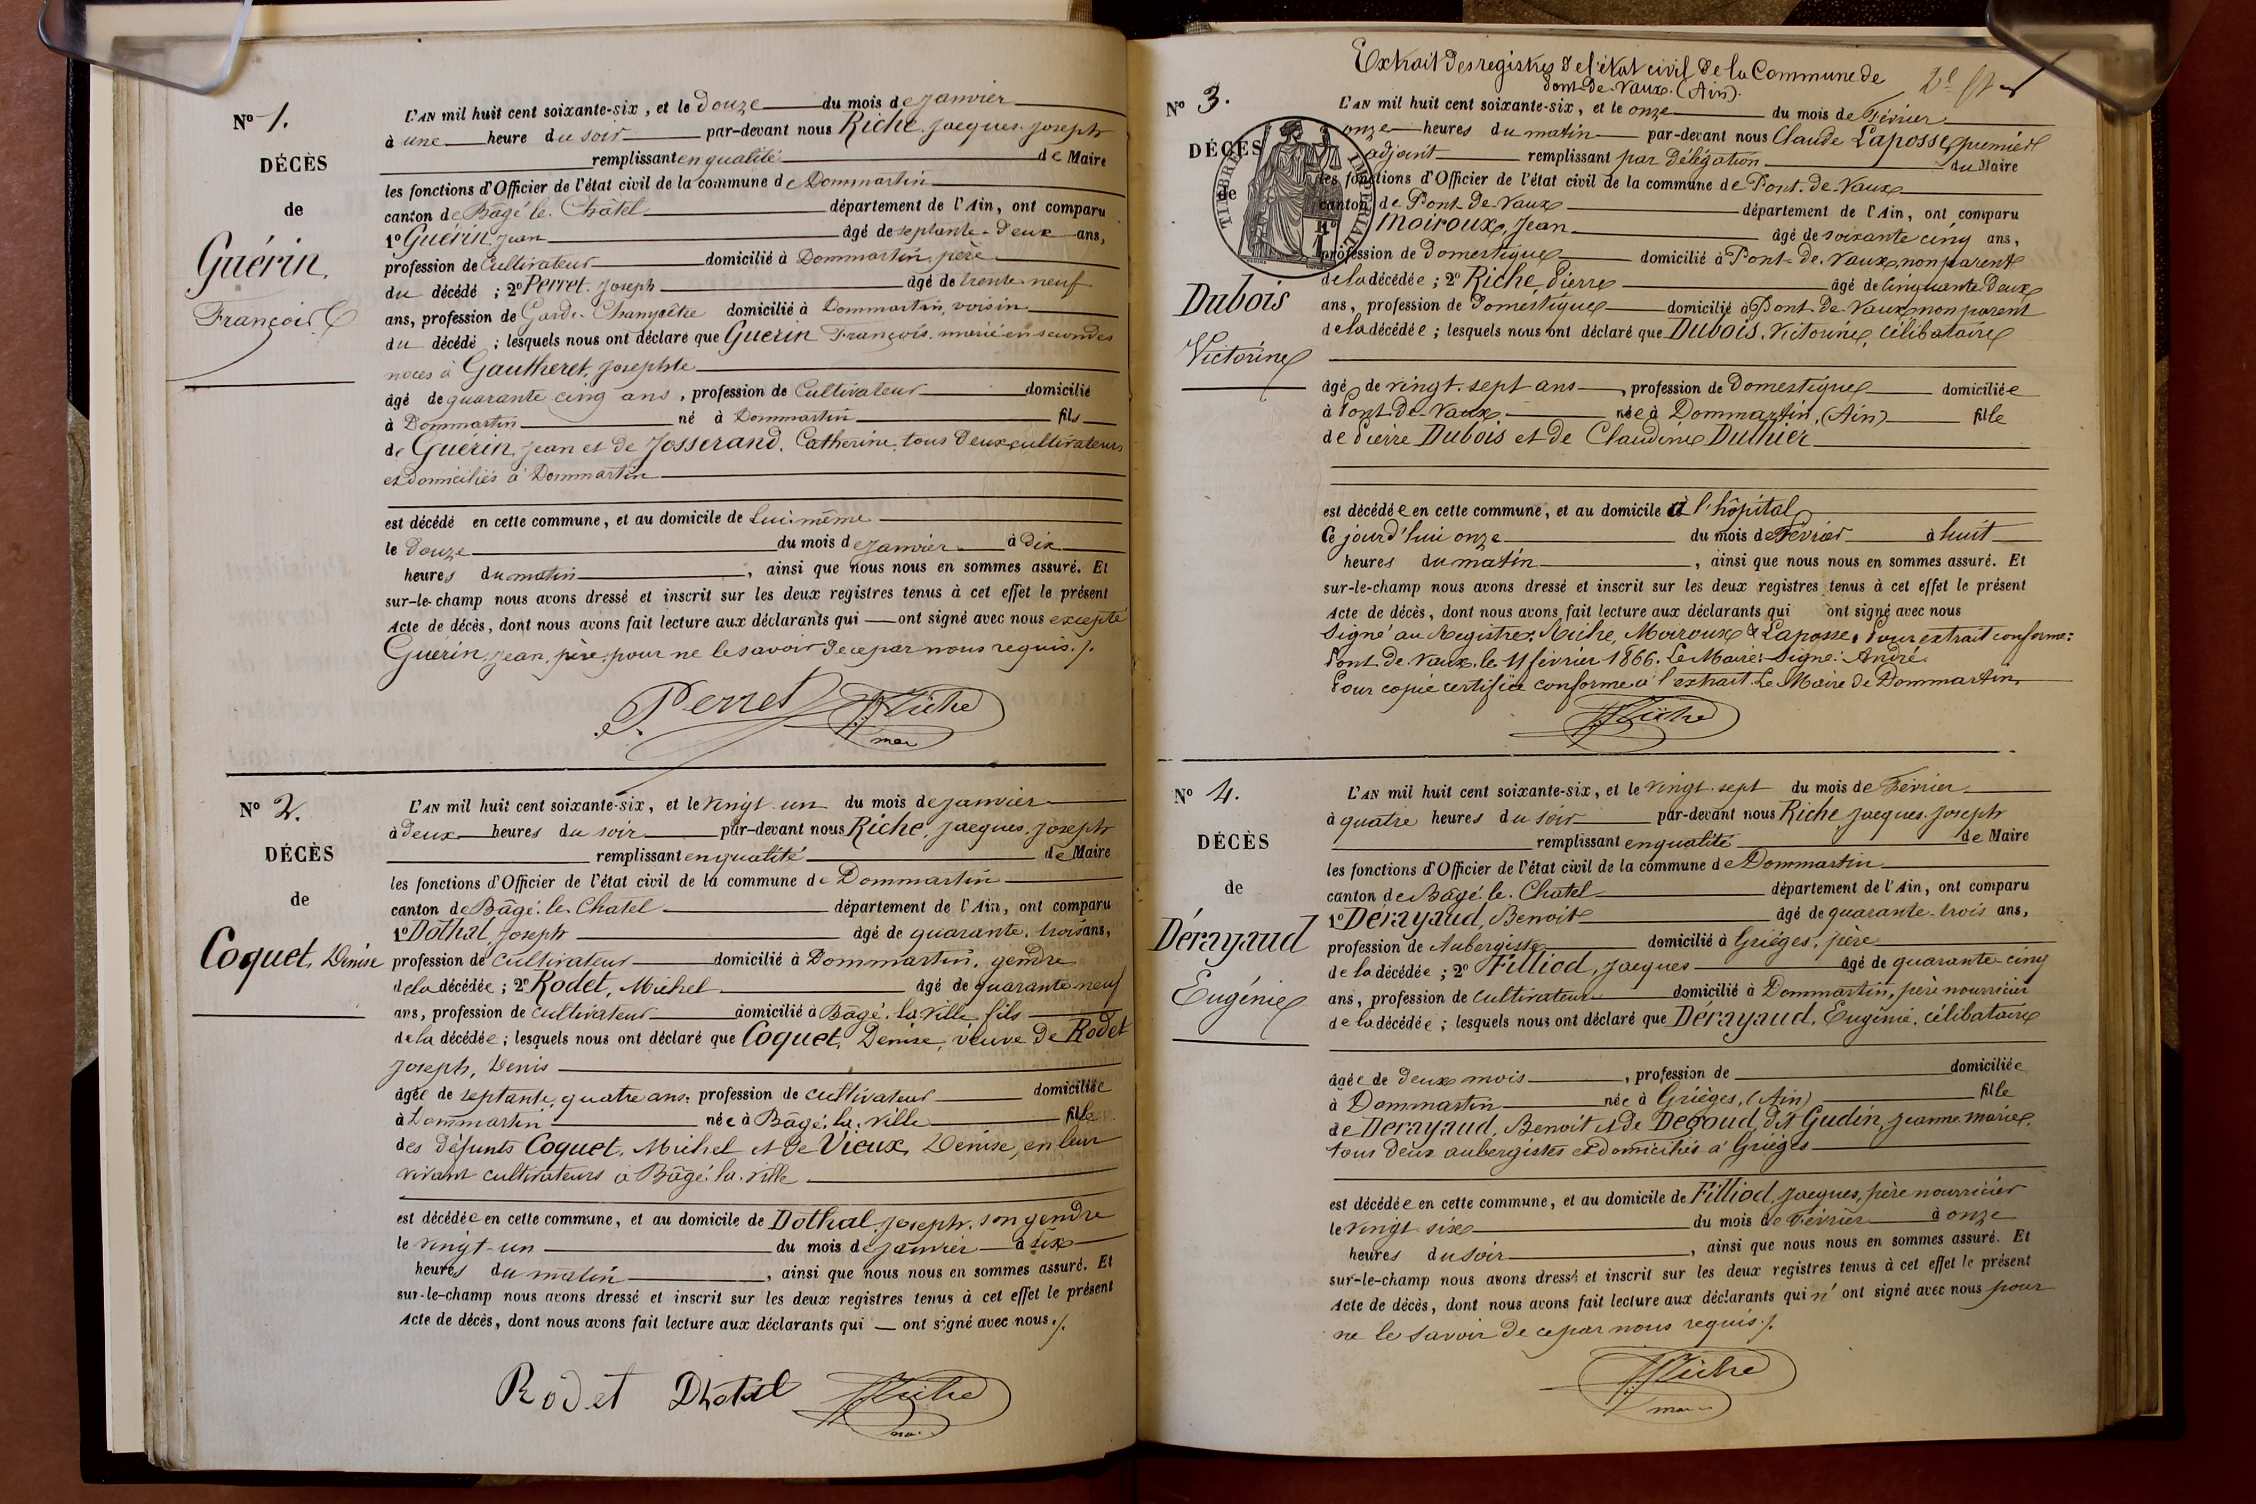 N° 1.
DÉCÈS
de
Guérin,
François
L'AN mil huit cent soixante-six, et le douze du mois de Janvier
à une heure du soir par-devant nous Riche, Jacques Joseph
remplissant en qualité de Maire
les fonctions d'Officier de l'état civil de la commune de Dommartin
canton de Bâgé-le-Châtel département de l'Ain, ont comparu
1° Guérin, Jean âgé de septante-deux ans,
profession de Cultivateur domicilié à Dommartin, père
du décédé ; 2° Perret, Joseph âgé de trente neuf
ans, profession de Garde-Champêtre domicilié à Dommartin, voisin
du décédé ; lesquels nous ont déclaré que Guérin François, marié en secondes
noces à Gautheret, Josephte
âgé de quarante cinq ans, profession de Cultivateur domicilié
à Dommartin né à Dommartin fils
de Guérin, Jean et de Josserand, Catherine, tous deux cultivateurs
et domiciliés à Dommartin
est décédé en cette commune, et au domicile de Lui-même
le douze du mois de Janvier à dix
heures du matin, ainsi que nous nous en sommes assuré. Et
sur-le-champ nous avons dressé et inscrit sur les deux registres tenus à cet effet le présent
Acte de décès, dont nous avons fait lecture aux déclarants qui ont signé avec nous excepté
Guérin, Jean, père, pour ne le savoir de ce par nous requis ./.
Perret Riche
mai
N° 2.
DÉCÈS
de
Coquet, Denise
L'AN mil huit cent soixante-six, et le vingt-un du mois de Janvier
à deux heures du soir par-devant nous Riche, Jacques Joseph
remplissant en qualité de Maire
les fonctions d'Officier de l'état civil de la commune de Dommartin
canton de Bâgé-le-Chatel département de l'Ain, ont comparu
1° Dothal, Joseph âgé de quarante-trois ans,
profession de cultivateur domicilié à Dommartin, gendre
de la décédée ; 2° Rodet, Michel âgé de quarante neuf
ans, profession de cultivateur domicilié à Bâgé-la-Ville, fils
de la décédée ; lesquels nous ont déclaré que Coquet, Denise, veuve de Rodet
Joseph, Denis
âgée de septante quatre ans, profession de cultivateur domiciliée
à Dommartin née à Bâgé-la-Ville fille
des défunts Coquet, Michel et de Vieux, Denise, en leur
vivant cultivateurs à Bâgé-la-Ville
est décédée en cette commune, et au domicile de Dothal, Joseph, son gendre
le vingt-un du mois de Janvier à six
heures du matin, ainsi que nous nous en sommes assuré. Et
sur-le-champ nous avons dressé et inscrit sur les deux registres tenus à cet effet le présent
Acte de décès, dont nous avons fait lecture aux déclarants qui ont signé avec nous ./.
Rodet Dhotal Riche
Extrait des registres de l'état civil de la Commune de
Pont-de-Vaux. (Ain).
N° 3.
DÉCÈS
de
TIMBRE IMPERIAL
Dubois
Victorine
L'AN mil huit cent soixante-six, et le onze du mois de Février
onze heures du matin par-devant nous Claude Laposse, premier
adjoint remplissant par délégation du Maire
les fonctions d'Officier de l'état civil de la commune de Pont-de-Vaux
canton de Pont-de-Vaux département de l'Ain, ont comparu
Moiroux, Jean âgé de soixante cinq ans,
profession de domestique domicilié à Pont-de-Vaux, non parent
de la décédée ; 2° Riche, Pierre âgé de cinquante deux
ans, profession de domestique domicilié à Pont-de-Vaux, non parent
de la décédée ; lesquels nous ont déclaré que Dubois, Victorine, célibataire
âgé de vingt-sept ans, profession de domestique domiciliée
à Pont-de-Vaux née à Dommartin, (Ain) fille
de Pierre Dubois et de Claudine Duthier
est décédée en cette commune, et au domicile à l'hôpital
Ce jourd'hui onze du mois de Février à huit
heures du matin, ainsi que nous nous en sommes assuré. Et
sur-le-champ nous avons dressé et inscrit sur les deux registres tenus à cet effet le présent
Acte de décès, dont nous avons fait lecture aux déclarants qui ont signé avec nous
Signé au Registre: Riche, Moiroux & Laposse. Pour extrait conforme:
Pont-de-Vaux, le 11 février 1866. Le Maire: Signé: André.
Pour copie certifiée conforme à l'extrait. Le Maire de Dommartin,
Riche
N° 4.
DÉCÈS
de
Dérayaud
Eugénie
L'AN mil huit cent soixante-six, et le vingt-sept du mois de Février
à quatre heures du soir par-devant nous Riche Jacques Joseph
remplissant en qualité de Maire
les fonctions d'Officier de l'état civil de la commune de Dommartin
canton de Bâgé-le-Chatel département de l'Ain, ont comparu
1° Dérayaud, Benoit âgé de quarante-trois ans,
profession de Aubergiste domicilié à Grièges, père
de la décédée ; 2° Filliod, Jacques âgé de quarante-cinq
ans, profession de cultivateur domicilié à Dommartin, père nourricier
de la décédée ; lesquels nous ont déclaré que Dérayaud, Eugénie, célibataire
âgée de deux mois, profession de domiciliée
à Dommartin née à Grièges, (Ain) fille
de Dérayaud, Benoit et de Degoud, dit Gudin, Jeanne-Marie,
tous deux aubergistes et domiciliés à Grièges
est décédée en cette commune, et au domicile de Filliod, Jacques, père nourricier
le vingt six du mois de Février à onze
heures du soir, ainsi que nous nous en sommes assuré. Et
sur-le-champ nous avons dressé et inscrit sur les deux registres tenus à cet effet le présent
Acte de décès, dont nous avons fait lecture aux déclarants qui n'ont signé avec nous pour
ne le savoir de ce par nous requis ./.
Riche